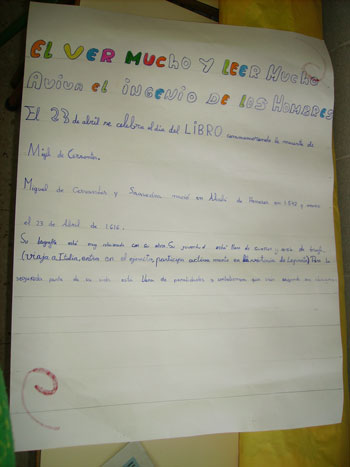 EL VER MUCHO Y LEER MUCHO
AVIVA EL INGENIO DE LOS HOMBRES
El 23 de abril se celebra el día del LIBRO conmemorando la muerte de
Migel de Cervantes.
Miguel de Cervantes y Saavedra nació en Alcalá de Henares en 1547 y murió
el 23 de Abril de 1616.
Su biografía está muy relacionada con su obra. Su juventud está llena de
(viaja a Italia, entra en el ejercito, participa activa mente en la victoria de Lepanto). Pero la
segunda parte de su vida está llena de penalidades y